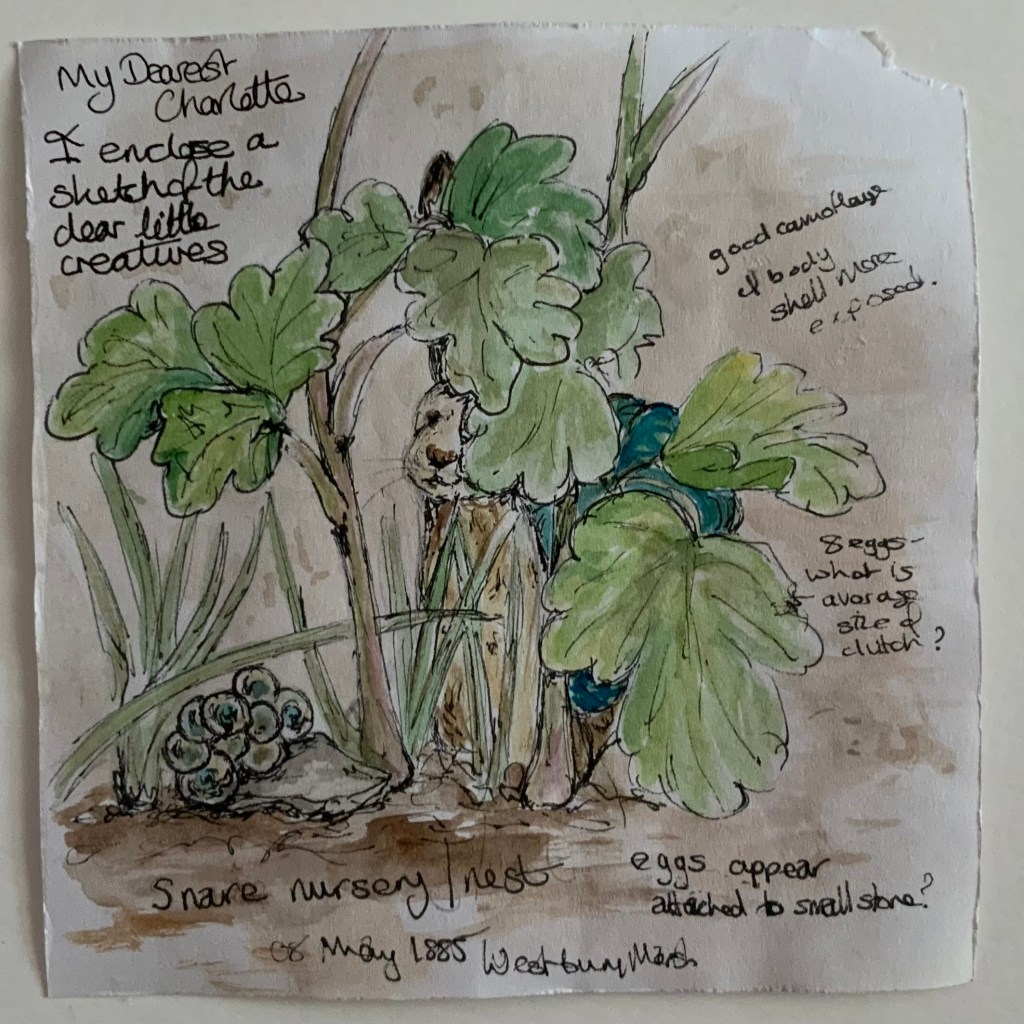 My Dearest
Charlotte
I enclose a
sketch of the
dear little
creatures
good camoflage
of body
shell more
exposed.
8 eggs -
what is
avorage
size of
clutch?
Snare nursery/nest
eggs appear
attached to small stone?
08 May 1885 Westbury Marsh